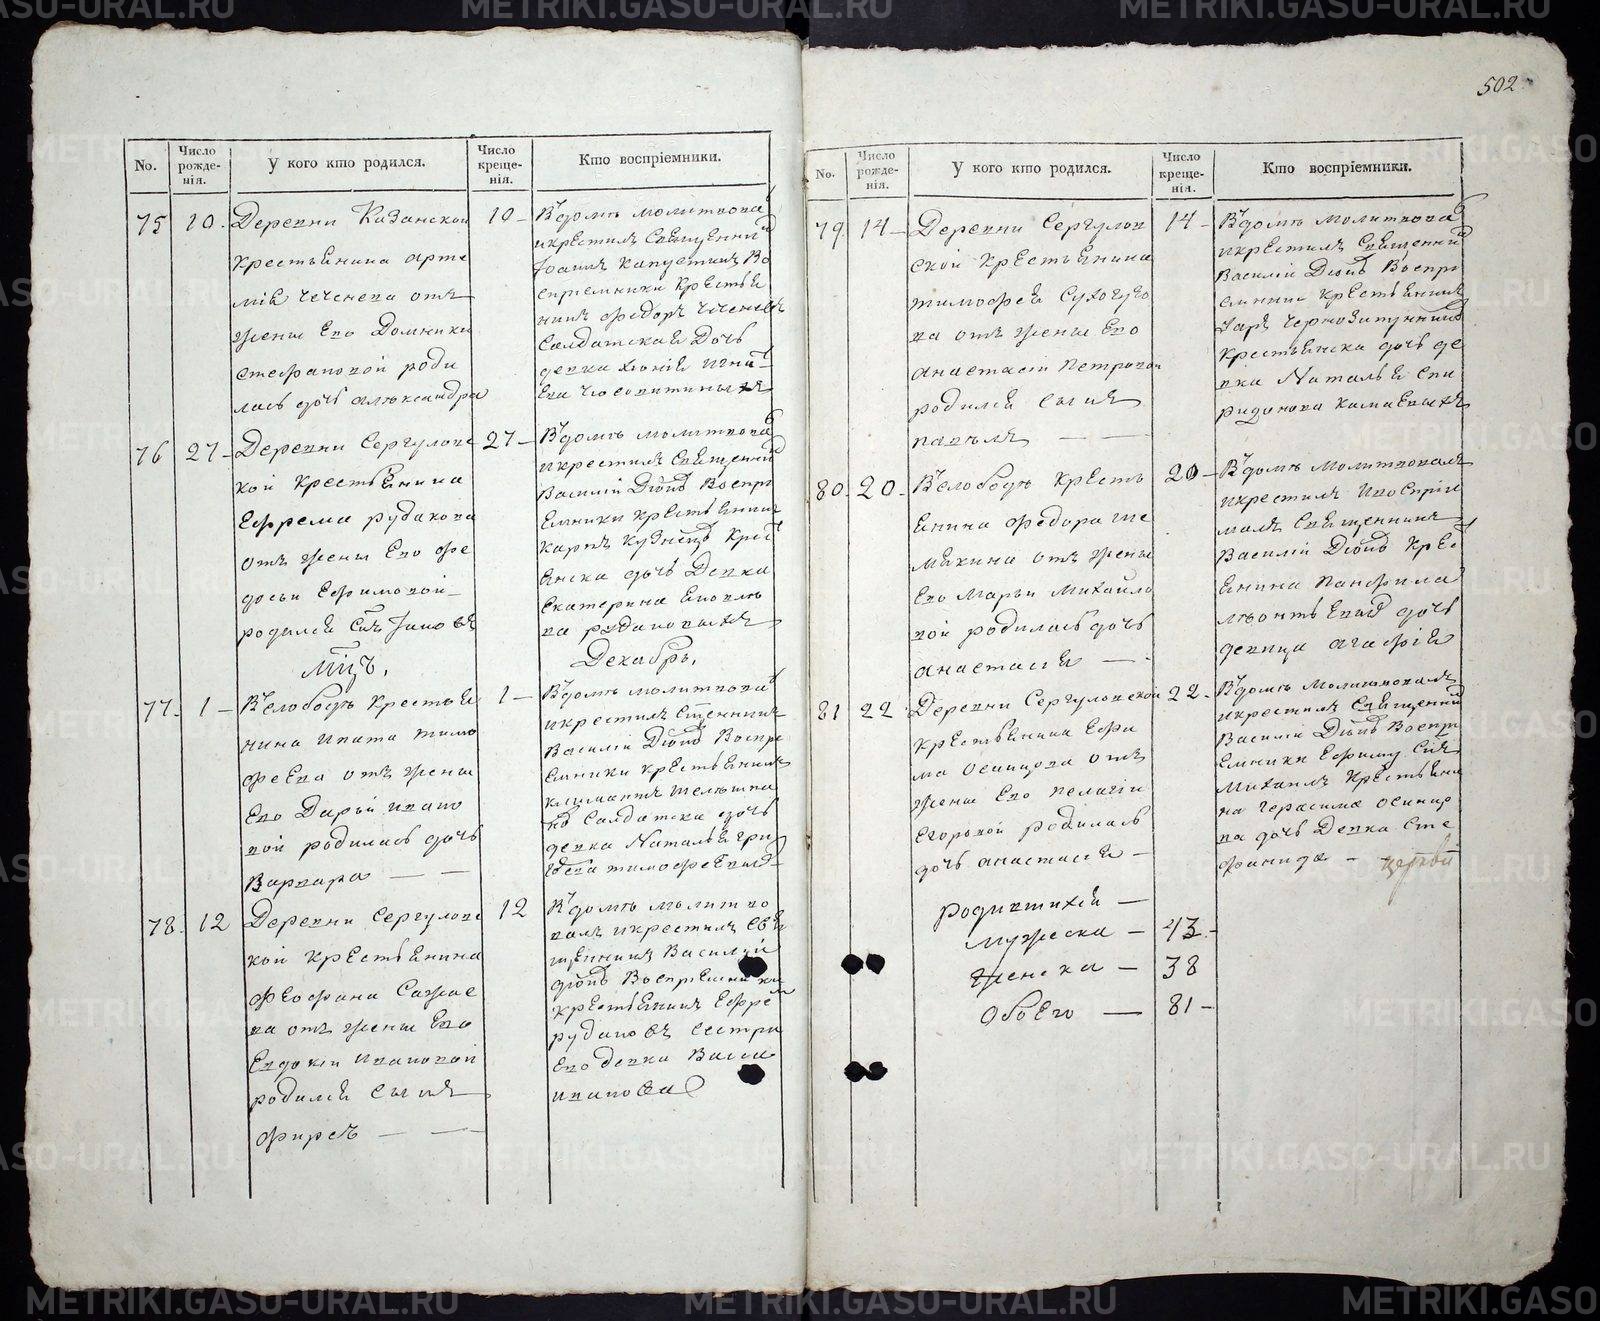 METRIKI.GASO-URAL.RU
502
No.
Число рожденія.
У кого кто родился.
Число крещенія.
Кто воспріемники.
75
10.
Деревни Казанской
крестьянина Арте
мія Чеченева отъ
жены Его Домники
Стефановой роди
лась дочь Александра
10
Въ домѣ молитвова
и крестилъ Священни
Іоаннъ Капустинъ Во
спріемники крестья
нинъ Федоръ Чеченевъ
Солдатская Дочь
девка
76
27
Деревни Сергуловс
кой крестьянина
Ефрема Рудакова
отъ жены Его Фе
досьи Ефимовой
родился Сынъ Іаковъ
27
Въ домѣ молитвова
и крестилъ Священни
Василій Воспрі
емники крестьянинъ
Карпъ Кузнецовъ Крес
янска дочь Девка
Екатерина Яковле
ва
Мцъ.
Декабрь.
77.
1
Въ слободѣ Крестья
нина Ипата Тимо
феева отъ жены
Его Дарьи Ивано
вой родилась дочь
Варвара
1
Въ домѣ молитвова
и крестилъ Сщенникъ
Василій Воспрі
емники крестьянинъ
Климантъ
Солдатска дочь
девка Наталья Гри
78.
12
Деревни Сергуловс
кой крестьянина
Феофана Сажае
ва отъ жены Его
Евдокіи Ивановой
родился Сынъ
Фирсъ
12
Въ домѣ молитво
валъ и крестилъ Свя
щенникъ Василій
Воспріемники
крестьянинъ Ефре
Рудаковъ Сестра
Его девка Васса
Иванова
No.
Число рожденія.
У кого кто родился.
Число крещенія.
Кто воспріемники.
79.
14
Деревни Сергулов
ской крестьянина
Тимофея Сухогузо
ва отъ жены Его
Анастасіи Петровой
родился Сынъ
Павелъ
14
Въ домѣ молитвова
и крестилъ Священни
Василій Воспрі
емники крестьянинъ
крестьянска дочь де
вка Наталья Спи
ридонова
80.
20
Въ слободѣ Кресть
янина Федора Ше
мякина отъ жены
Его Марьи Михайло
вой родилась дочь
Анастасія
20
Въ домѣ молитвовалъ
и крестилъ и воспріи
малъ Священникъ
Василій Крес
янина Панфила
дочь
девица Агафія
81
22
Деревни Сергуловской
крестьянина Ефи
ма Осинцова отъ
жены Его Пелагіи
Егоровой родилась
дочь Анастасія
22
Въ домѣ молитвовалъ
и крестилъ Священни
Василій Воспрі
емники Ефиму Сынъ
Михаилъ крестьяни
на Герасима Осинцо
ва дочь Девка Сте
фанида
Родившихся
Мужеска 43
Женска 38
Обоего 81